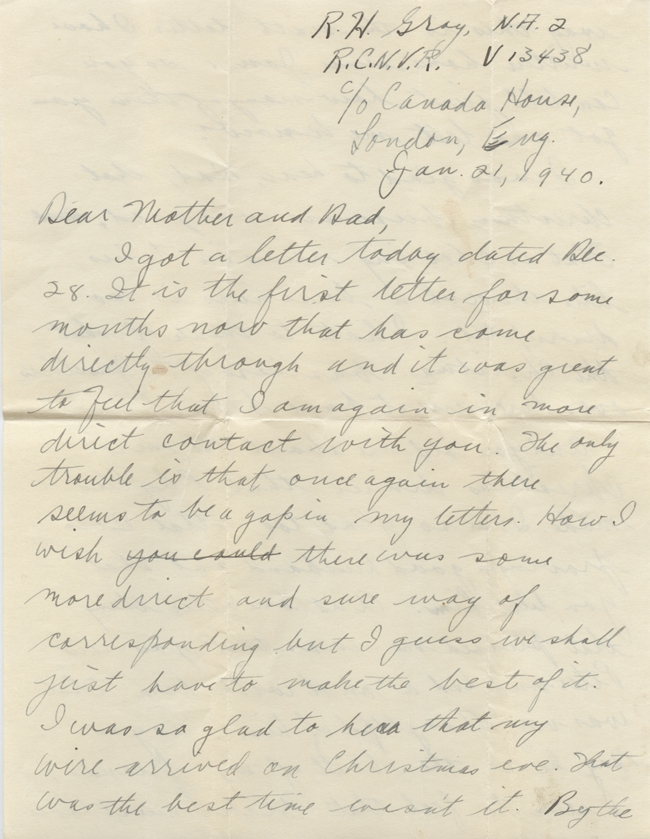 R. H. Gray, N.A. 2
R.C.N.V.R. V 13438
c/o Canada House,
London, Eng.
Jan. 21, 1940.
Dear Mother and Dad,
I got a letter today dated Dec.
28. It is the first letter for some
months now that has come
directly through and it was great
to feel that I am again in more
direct contact with you. The only
trouble is that once again there
seems to be a gap in my letters. How I
wish you could there was some
more direct and sure way of
corresponding but I guess we shall
just have to make the best of it.
I was so glad to hea that my
wire arrived on Christmas eve. That
was the best time wasn't it. By the